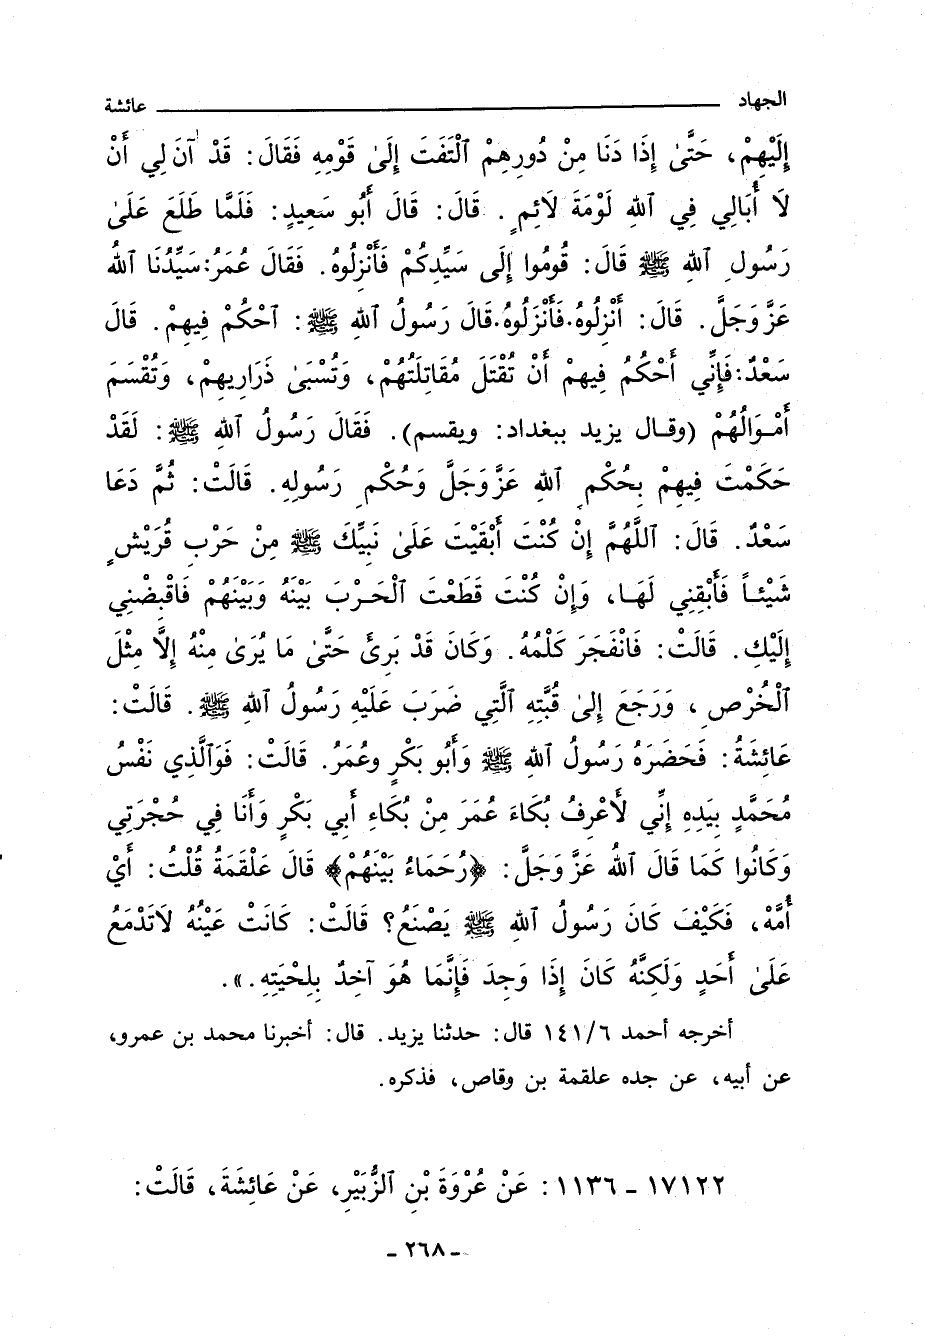 الجهاد عائشة
إِلَيْهِمْ، حَتَّىٰ إِذَا دَنَا مِنْ دُورِهِمْ ٱلْتَفَتَ إِلَىٰ قَوْمِهِ فَقَالَ: قَدْ آنَ لِي أَنْ
لَا أُبَالِي فِي ٱللهِ لَوْمَةَ لَائِمٍ. قَالَ: قَالَ أَبُو سَعِيدٍ: فَلَمَّا طَلَعَ عَلَىٰ
رَسُولِ ٱللهِ ﷺ قَالَ: قُومُوا إِلَى سَيِّدِكُمْ فَأَنْزِلُوهُ. فَقَالَ عُمَرُ: سَيِّدُنَا ٱللهُ
عَزَّ وَجَلَّ. قَالَ: أَنْزِلُوهُ. فَأَنْزَلُوهُ. قَالَ رَسُولُ ٱللهِ ﷺ: ٱحْكُمْ فِيهِمْ. قَالَ
سَعْدٌ: فَإِنِّي أَحْكُمُ فِيهِمْ أَنْ تُقْتَلَ مُقَاتِلَتُهُمْ، وَتُسْبَىٰ ذَرَارِيهِمْ، وَتُقْسَمَ
أَمْوَالُهُمْ (وقال يزيد ببغداد: ويقسم). فَقَالَ رَسُولُ ٱللهِ ﷺ: لَقَدْ
حَكَمْتَ فِيهِمْ بِحُكْمِ ٱللهِ عَزَّ وَجَلَّ وَحُكْمِ رَسُولِهِ. قَالَتْ: ثُمَّ دَعَا
سَعْدٌ. قَالَ: ٱللَّهُمَّ إِنْ كُنْتَ أَبْقَيْتَ عَلَىٰ نَبِيِّكَ ﷺ مِنْ حَرْبِ قُرَيْشٍ
شَيْئاً فَأَبْقِنِي لَهَا، وَإِنْ كُنْتَ قَطَعْتَ ٱلْحَرْبَ بَيْنَهُ وَبَيْنَهُمْ فَاقْبِضْنِي
إِلَيْكِ. قَالَتْ: فَانْفَجَرَ كَلْمُهُ. وَكَانَ قَدْ بَرِىءَ حَتَّىٰ مَا يُرَىٰ مِنْهُ إِلَّا مِثْلَ
ٱلْخُرْصِ، وَرَجَعَ إِلَىٰ قُبَّتِهِ ٱلَّتِي ضَرَبَ عَلَيْهِ رَسُولُ ٱللهِ ﷺ. قَالَتْ:
عَائِشَةُ: فَحَضَرَهُ رَسُولُ ٱللهِ ﷺ وَأَبُو بَكْرٍ وعُمَرُ. قَالَتْ: فَوَٱلَّذِي نَفْسُ
مُحَمَّدٍ بِيَدِهِ إِنِّي لَأَعْرِفُ بُكَاءَ عُمَرَ مِنْ بُكَاءِ أَبِي بَكْرٍ وَأَنَا فِي حُجْرَتِي
وَكَانُوا كَمَا قَالَ ٱللهُ عَزَّ وَجَلَّ: ﴿رُحَمَاءُ بَيْنَهُمْ﴾ قَالَ عَلْقَمَةُ قُلْتُ: أَيْ
أُمَّهْ، فَكَيْفَ كَانَ رَسُولُ ٱللهِ ﷺ يَصْنَعُ؟ قَالَتْ: كَانَتْ عَيْنُهُ لَا تَدْمَعُ
عَلَىٰ أَحَدٍ وَلَكِنَّهُ كَانَ إِذَا وَجِدَ فَإِنَّمَا هُوَ آخِدٌ بِلِحْيَتِهِ.».
أخرجه أحمد ١٤١/٦ قال: حدثنا يزيد. قال: أخبرنا محمد بن عمرو،
عن أبيه، عن جده علقمة بن وقاص، فذكره.
١٧١٢٢ - ١١٣٦: عَنْ عُرْوَةَ بْنِ ٱلزُّبَيْرِ، عَنْ عَائِشَةَ، قَالَتْ:
- ٢٦٨ -